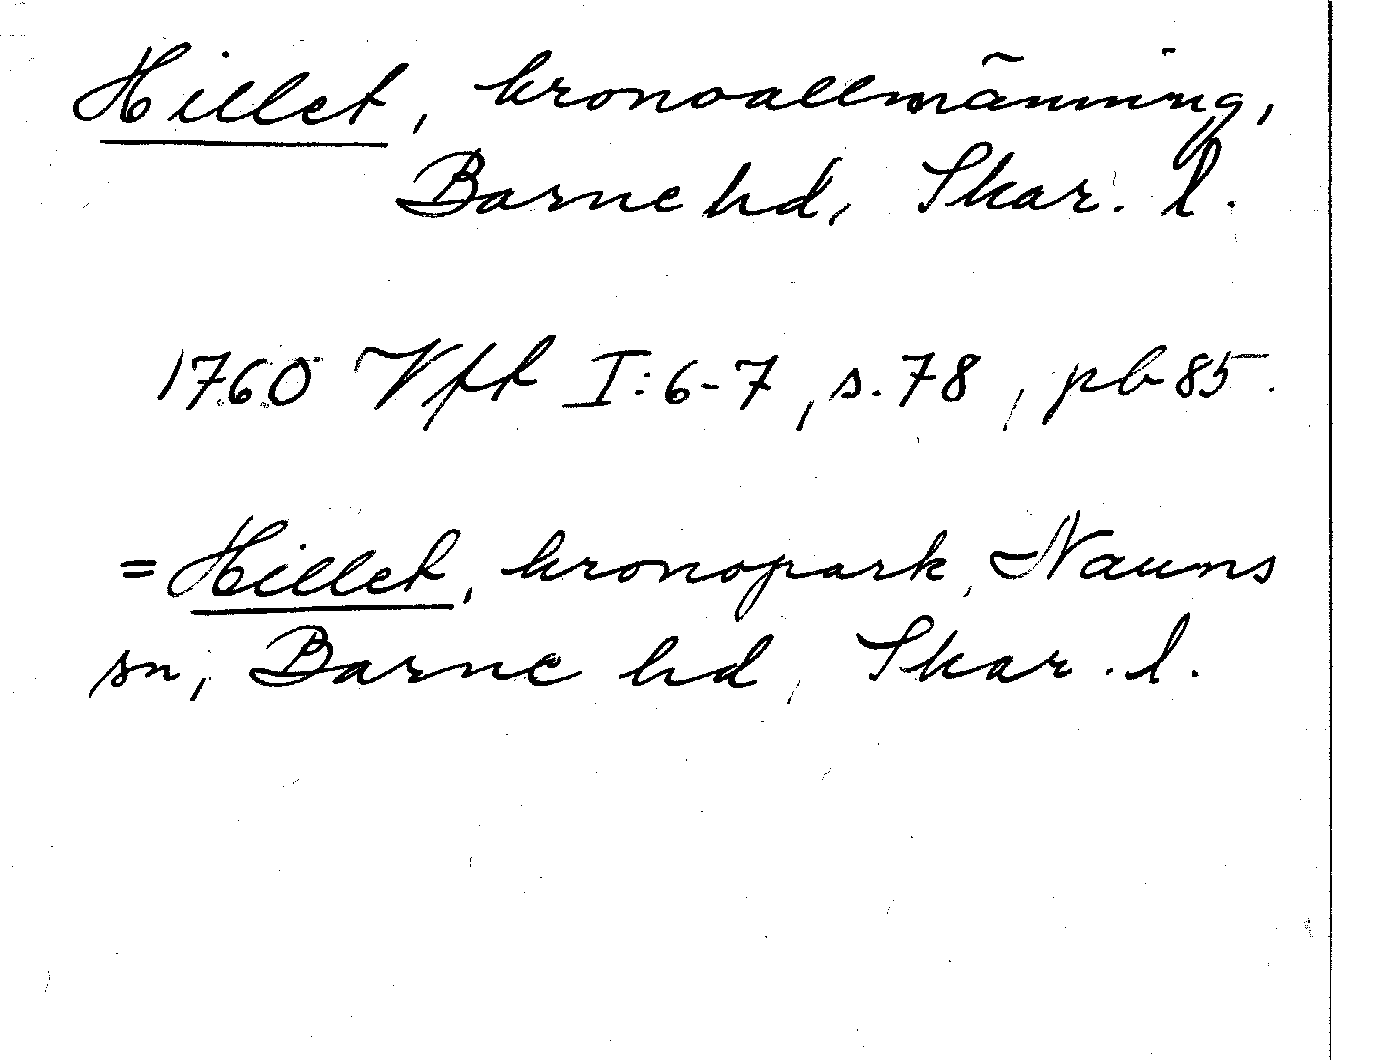 Hillet, kronoallmänning,
Barne hd, Skar. l.
1760 Vft I:6-7, s. 78, pb 85.
= Hillet, kronopark, Naums
sn, Barne hd, Skar. l.